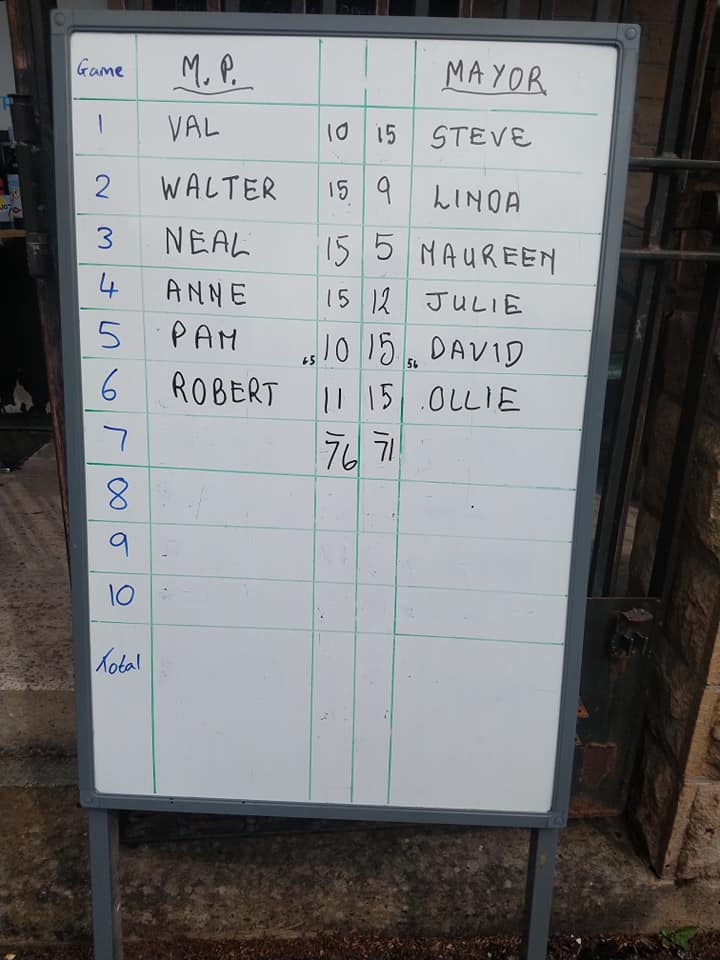 Game M.P. MAYOR
1 VAL 10 15 STEVE
2 WALTER 15 9 LINDA
3 NEAL 15 5 MAUREEN
4 ANNE 15 12 JULIE
5 PAM 65 10 15 56 DAVID
6 ROBERT 11 15 OLLIE
7 76 71
8
9
10
Total